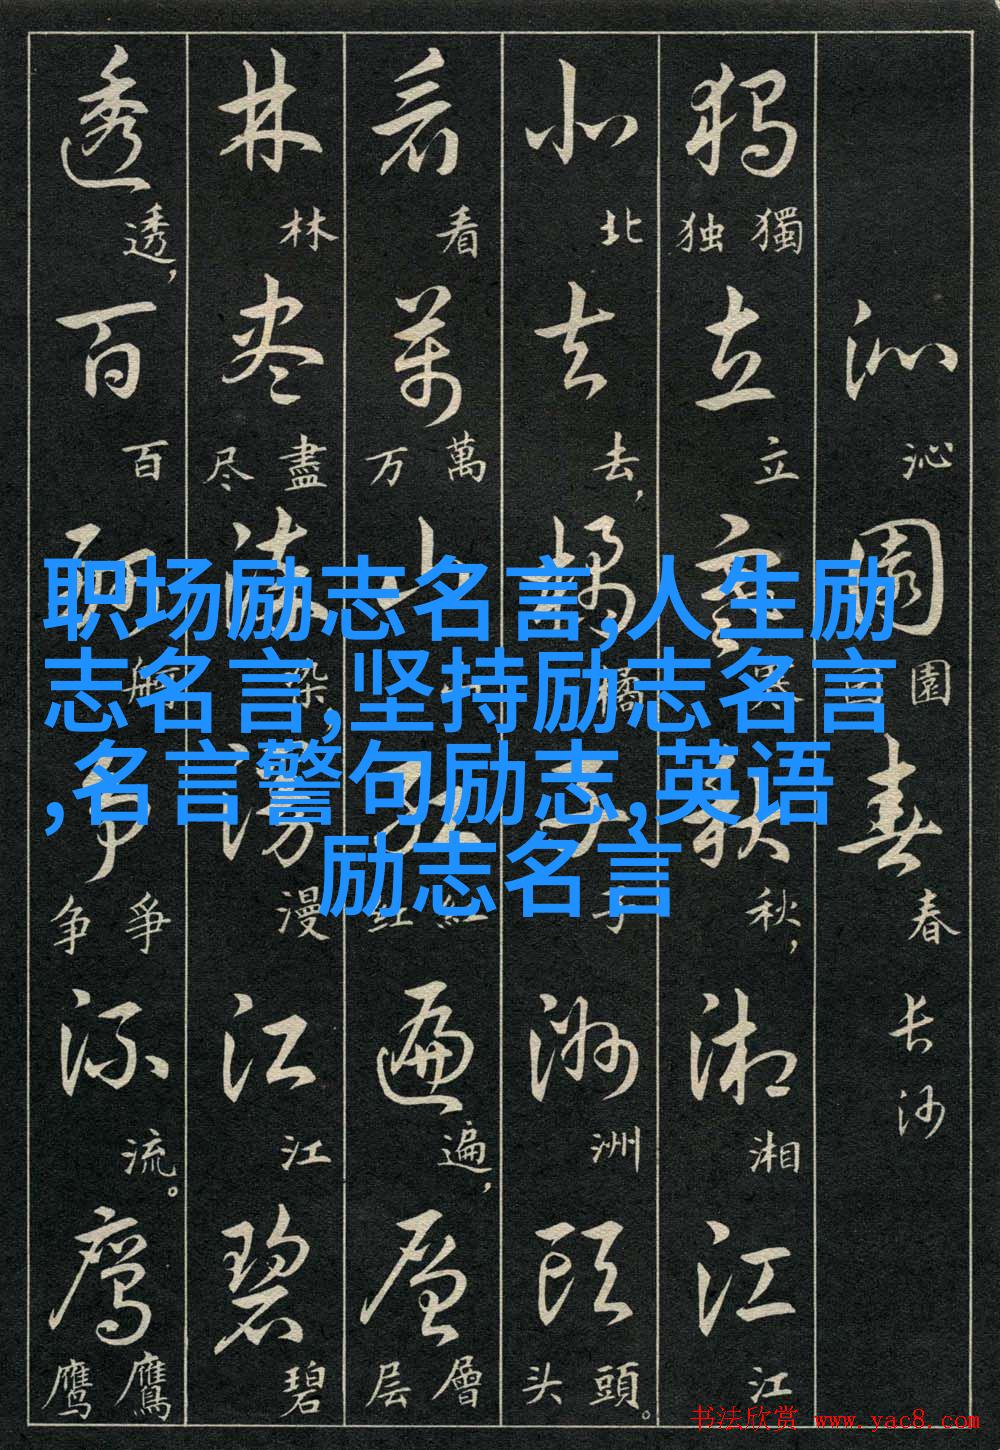 沁沁園園春春长沙
独獨独立立寒寒秋秋，湘湘江江
北北去去，橘橘子子洲洲头頭头。
看看萬萬万山山红紅红遍遍，层層层
林林尽盡尽染染漫漫江江碧碧
透透，百百舸舸争爭争流流。鹰鷹鹰
职场励志名言,人生励
志名言,坚持励志名言
,名言警句励志,英语
励志名言
书法欣赏 www.yac8.com